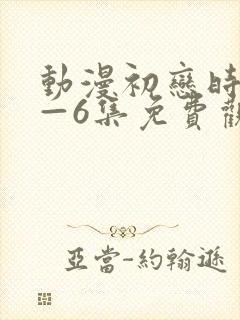 動漫初戀時
—6集免費觀
亞當-約翰遜